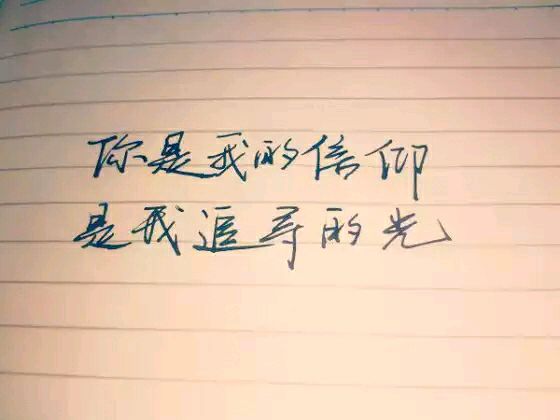 你是我的信仰
是我追寻的光